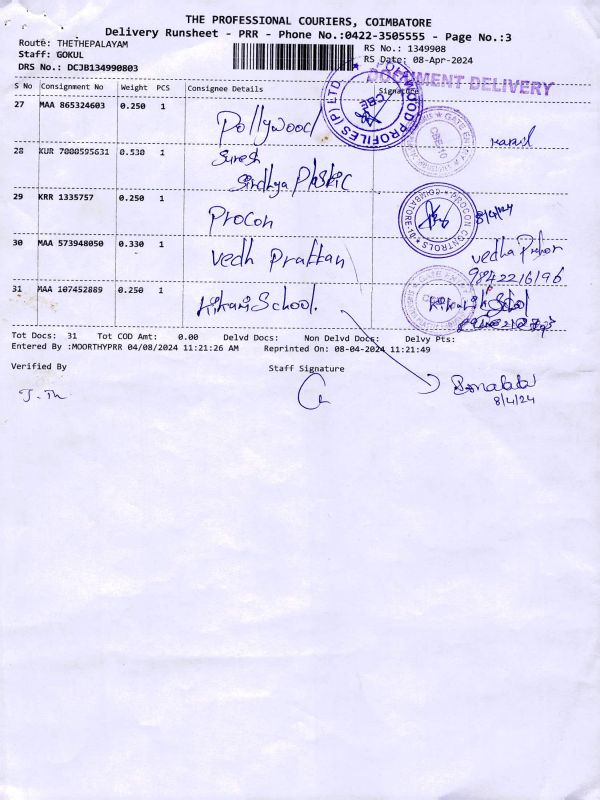 THE PROFESSIONAL COURIERS, COIMBATORE
Delivery Runsheet - PRR - Phone No.:0422-3505555 - Page No.:3
Route: THETHEPALAYAM
RS No.: 1349908
Staff: GOKUL
RS Date: 08-Apr-2024
DRS No.: DCJB134990803
DOCUMENT DELIVERY
S No Consignment No Weight PCS Consignee Details Signature
27 MAA 865324603 0.250 1
Pollywood
POLLYWOOD PROFILES (P) LTD.
CBE
28 KUR 7000595631 0.530 1
Suresh
Sindhya Plastic
29 KRR 1335757 0.250 1
Procon
PROCON CONTROLS
8/4/24
30 MAA 573948050 0.330 1
Vedh Prattan
vedha
9842216196
31 MAA 107452889 0.250 1
Kikani School.
Kikani School
Tot Docs: 31 Tot COD Amt: 0.00 Delvd Docs: Non Delvd Docs: Delvy Pts:
Entered By :MOORTHYPRR 04/08/2024 11:21:26 AM Reprinted On: 08-04-2024 11:21:49
Verified By Staff Signature
8/4/24